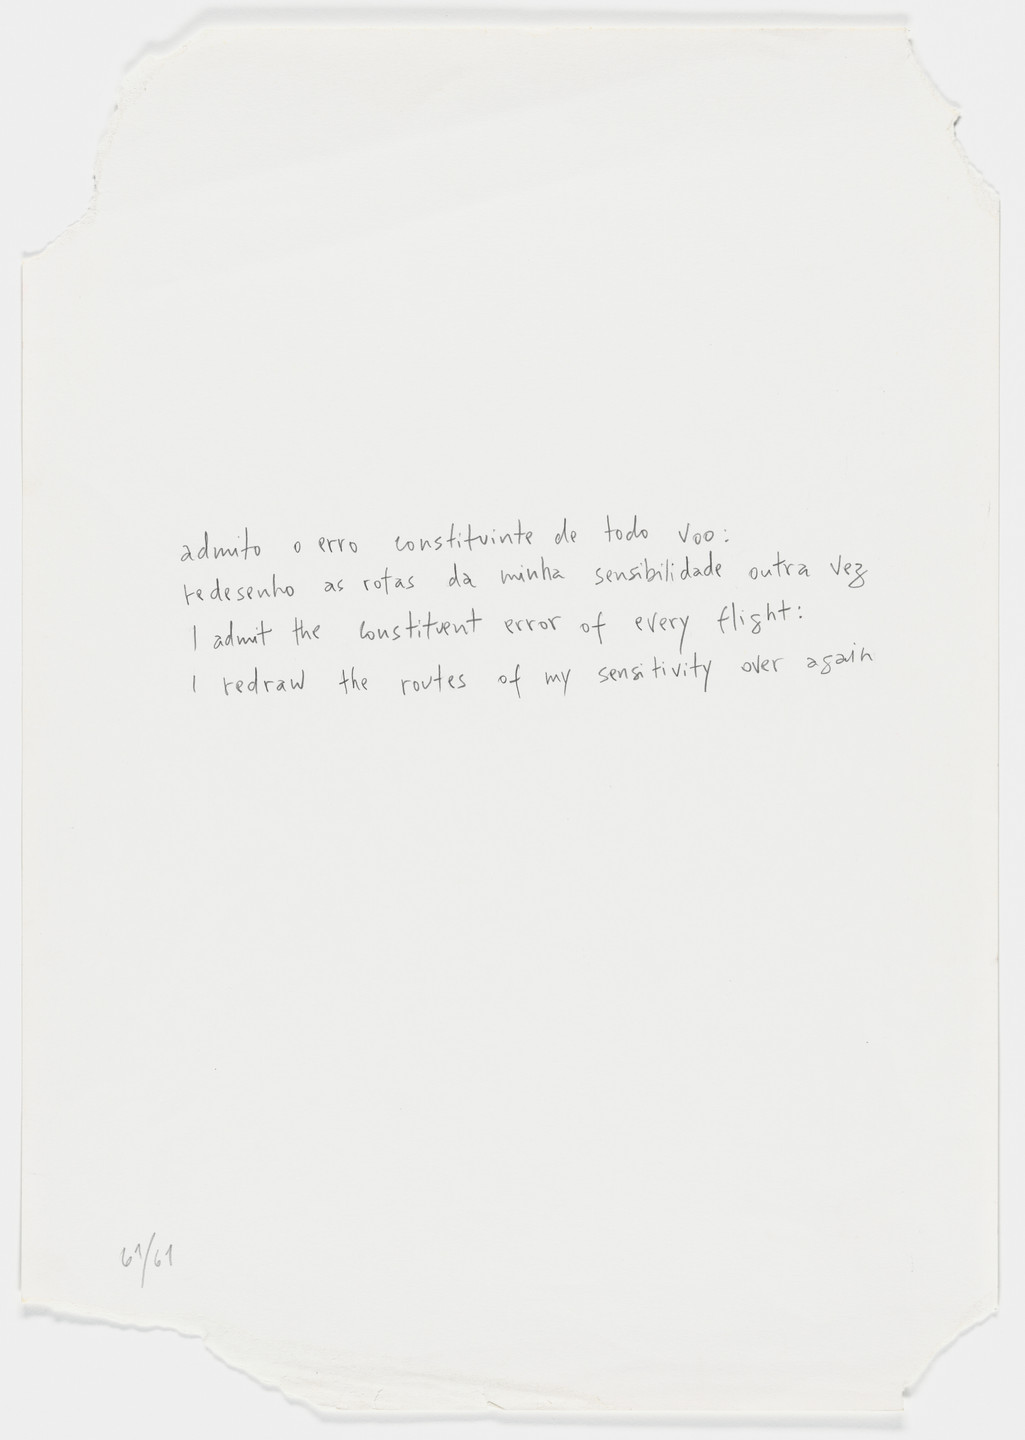 admito o erro constituinte de todo voo:
redesenho as rotas da minha sensibilidade outra vez
I admit the constituent error of every flight:
I redraw the routes of my sensitivity over again
61/61